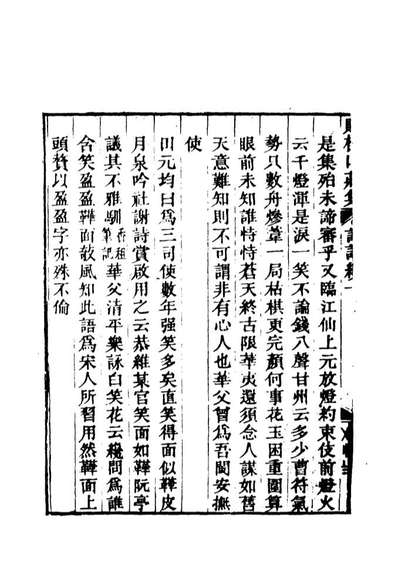 是集殆未諦審乎又臨江仙上元放燈約束伎前燈火
云千燈渾是淚一笑不論錢八聲甘州云多少曹苻氣
勢只數舟燥葦一局枯棋更完顏何事花玉困重圍算
眼前未知誰恃恃蒼天終古限華夷還須念人謀如舊
天意難知則不可謂非有心人也華父曾為吾閩安撫
使
田元均曰為三司使數年强笑多矣直笑得面似鞾皮
月泉吟社謝詩賞啟用之云恭維某官笑面如鞾阮亭
議其不雅馴香祖筆記華父清平樂詠白笑花云纔問為誰
含笑盈盈鞾面敧風知此語為宋人所習用然鞾面上
頭贅以盈盈字亦殊不倫